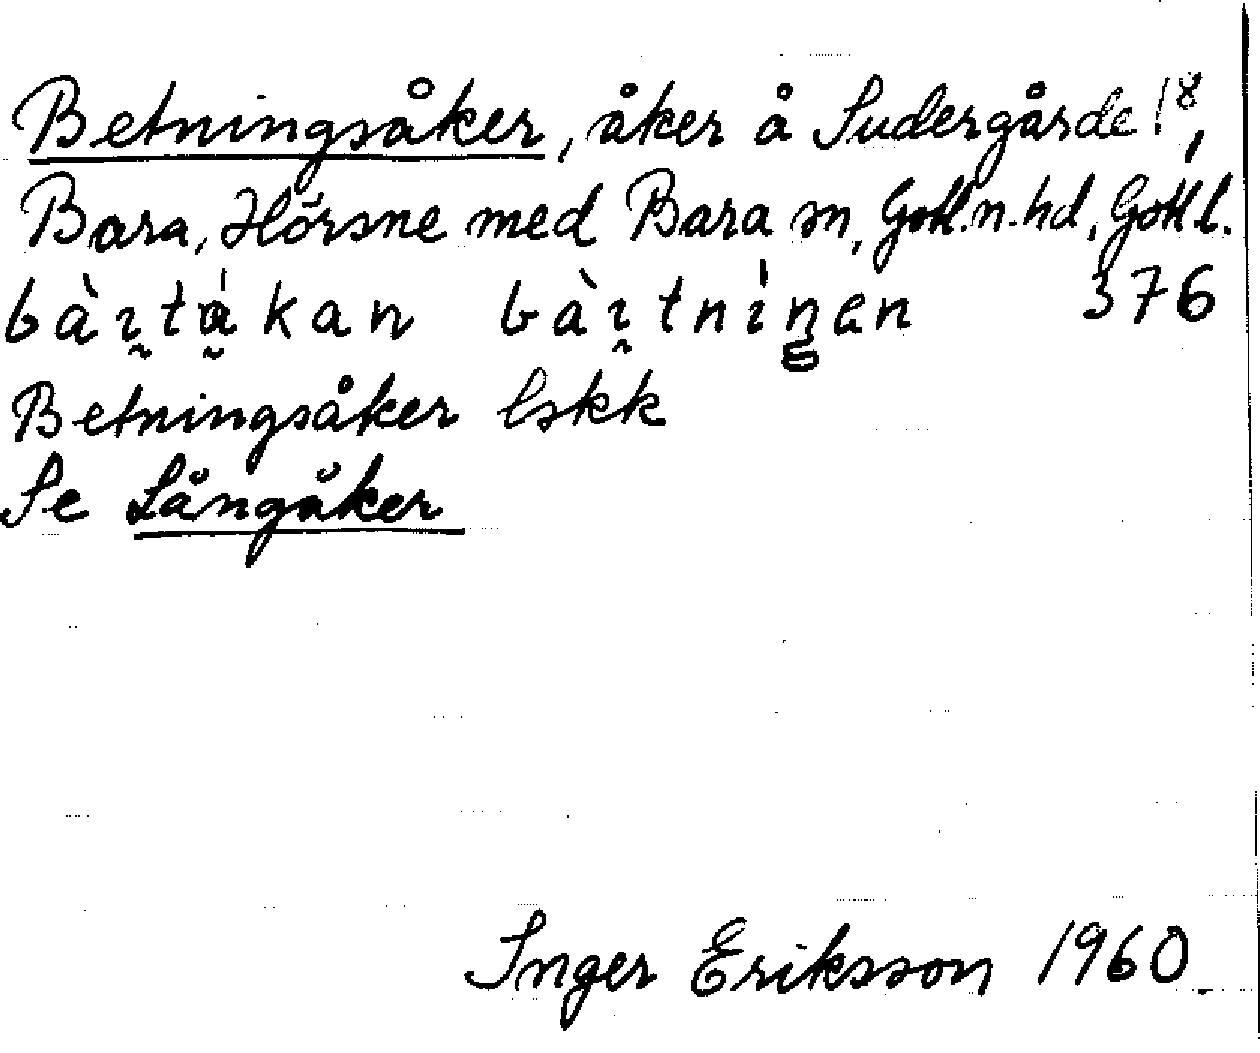 Betningsåker, åker å Sudergårde 1⁸,
Bara, Hörsne med Bara sn, Gotl. n. hd, Gotl l.
bàı̯tákan bàı̯tníŋen 376
Betningsåker lskk
Se Långåker
Inger Eriksson 1960.